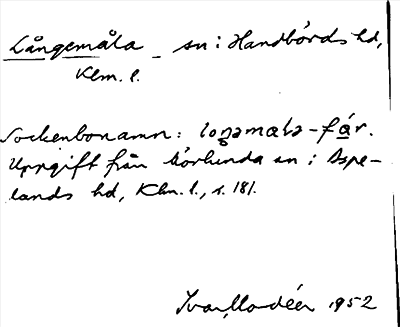 Långemåla – sn i Handbörds hd,
Klm. l.
Sockenbonamn: loŋəmåla-får.
Uppgift från sn i Aspe-
lands hd, Klm. l., s. 181.
Ivar Modéer 1952